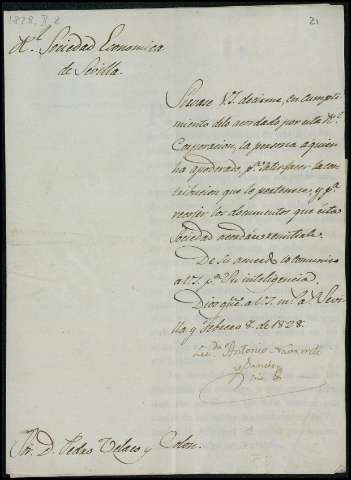 1828. II. 8
21
Rl. Sociedad Economica
de Sevilla.
Sirvase V.S. decirme, en cumpli-
miento de lo acordado por esta Rl.
Corporacion, la persona a quien
ha apoderado, pa. satisfacer la con-
tribucion que le pertenece, y pa.
recojer los documentos que esta
Sociedad acordó remitirle.
De su acuerdo lo comunico
a V.S. pa. su inteligencia.
Dios gue. a V.S. ms. as. Sevi-
lla y Febrero 8. de 1828.
Licdo. Antonio Navarrete
Sor. D. Pedro Velasco y Colon.